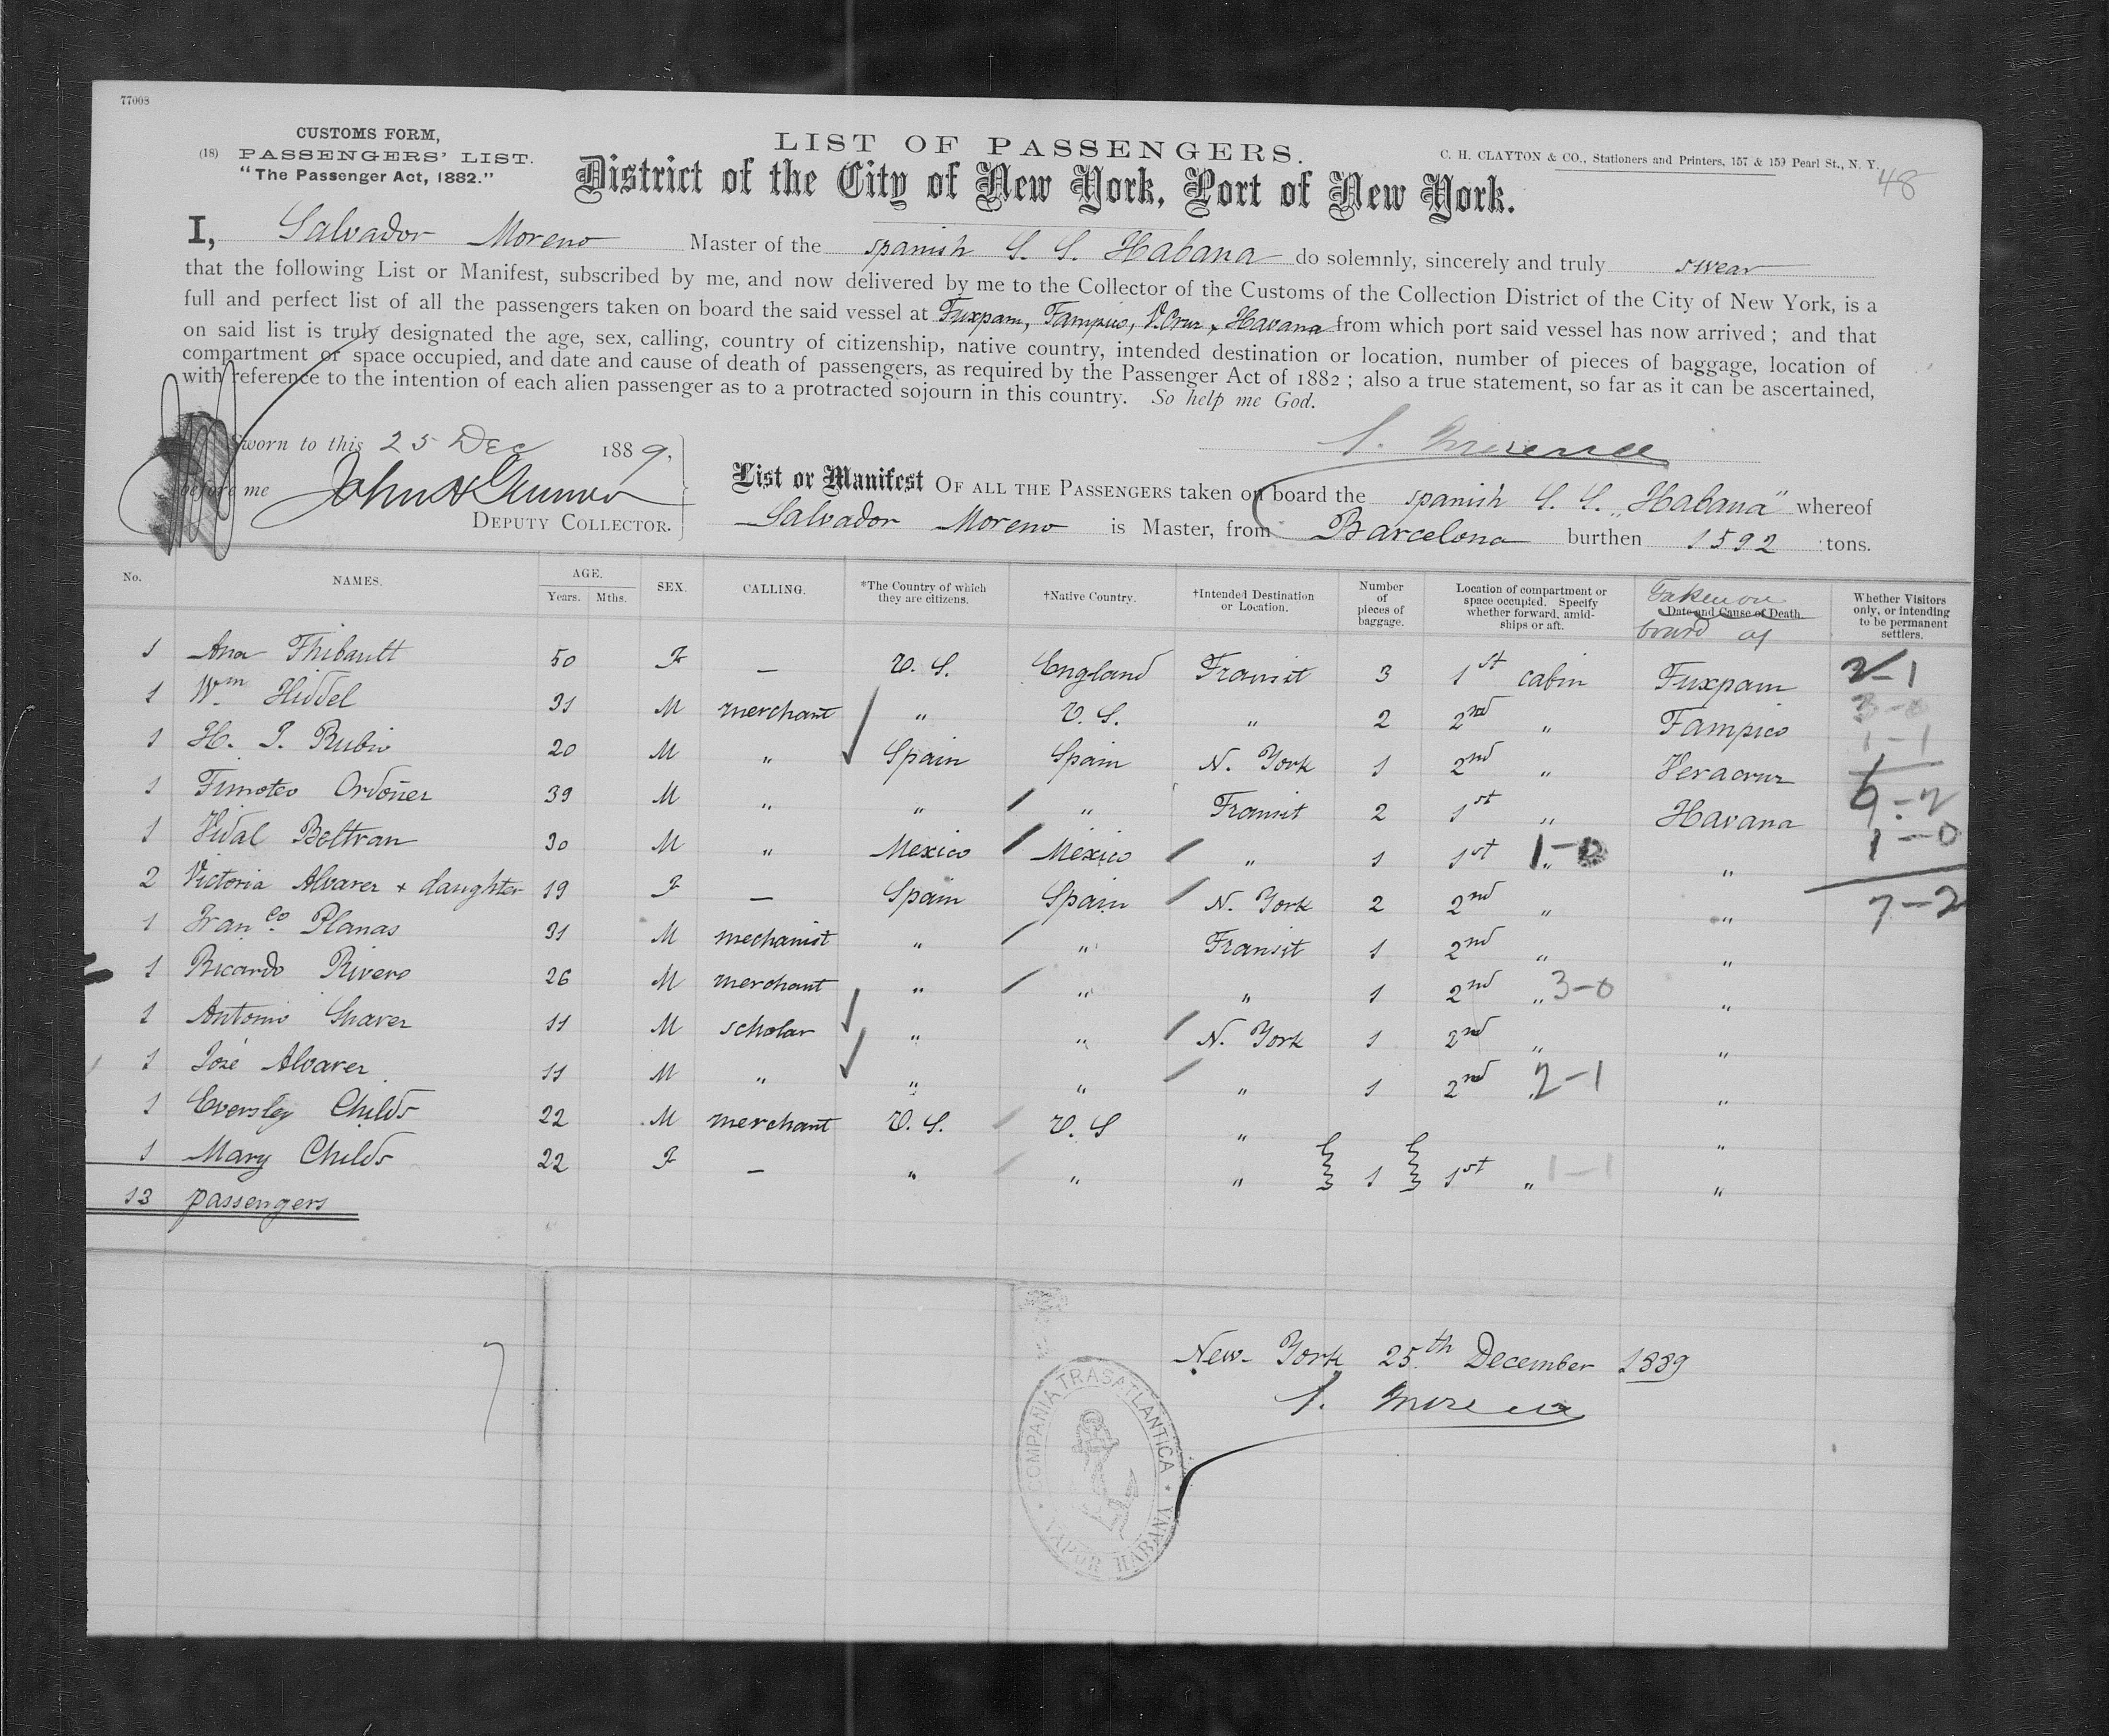 77008
CUSTOMS FORM,
(18) PASSENGERS' LIST.
"The Passenger Act, 1882."
LIST OF PASSENGERS.
C. H. CLAYTON & CO., Stationers and Printers, 157 & 159 Pearl St., N. Y.
48
District of the City of New York, Port of New York.
I, Salvador Moreno Master of the spanish S. S. Habana do solemnly, sincerely and truly swear
that the following List or Manifest, subscribed by me, and now delivered by me to the Collector of the Customs of the Collection District of the City of New York, is a
full and perfect list of all the passengers taken on board the said vessel at Tuxpam, Tampico, V. Cruz, Havana from which port said vessel has now arrived; and that
on said list is truly designated the age, sex, calling, country of citizenship, native country, intended destination or location, number of pieces of baggage, location of
compartment or space occupied, and date and cause of death of passengers, as required by the Passenger Act of 1882; also a true statement, so far as it can be ascertained,
with reference to the intention of each alien passenger as to a protracted sojourn in this country. So help me God.
Sworn to this 25 Dec 1889,
S. Moreno
before me
DEPUTY COLLECTOR.
List or Manifest OF ALL THE PASSENGERS taken on board the spanish S. S. "Habana" whereof
Salvador Moreno is Master, from Barcelona burthen 1592 tons.
No. NAMES. AGE. Years. Mths. SEX. CALLING. *The Country of which they are citizens. †Native Country. †Intended Destination or Location. Number of pieces of baggage. Location of compartment or space occupied. Specify whether forward, amidships or aft. Date and Cause of Death. Taken on board at Whether Visitors only, or intending to be permanent settlers.
1 Ana Thibault 50 F — U. S. England Transit 3 1st cabin Tuxpam 2-1
1 Wm Hiddel 31 M merchant " U. S. " 2 2nd " Tampico 3-0
1 H. J. Rubio 20 M " Spain Spain N. York 1 2nd " Veracruz 1-1
1 Timoteo Ordoñez 39 M " " " Transit 2 1st " Havana 6-2
1 Vidal Beltran 30 M " Mexico Mexico " 1 1st " 1-0 " 1-0
2 Victoria Alvarez + daughter 19 F — Spain Spain N. York 2 2nd " " 7-2
1 Franco. Planas 31 M mechanist " " Transit 1 2nd " "
1 Ricardo Rivero 26 M merchant " " " 1 2nd " 3-0 "
1 Antonio Chavez 11 M scholar " " N. York 1 2nd " "
1 José Alvarez 11 M " " " " 1 2nd " 2-1 "
1 Eversley Childs 22 M merchant U. S. U. S " "
1 Mary Childs 22 F — " " " 1 1st " 1-1 "
13 passengers
New-York 25th December 1889
S. Moreno
COMPAÑIA TRASATLANTICA * VAPOR HABANA *